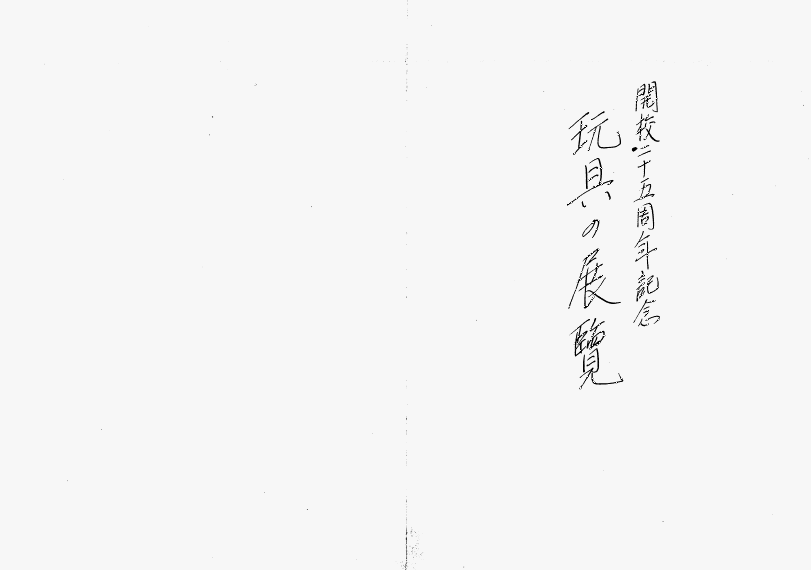 開校二十五周年記念
玩具の展覽